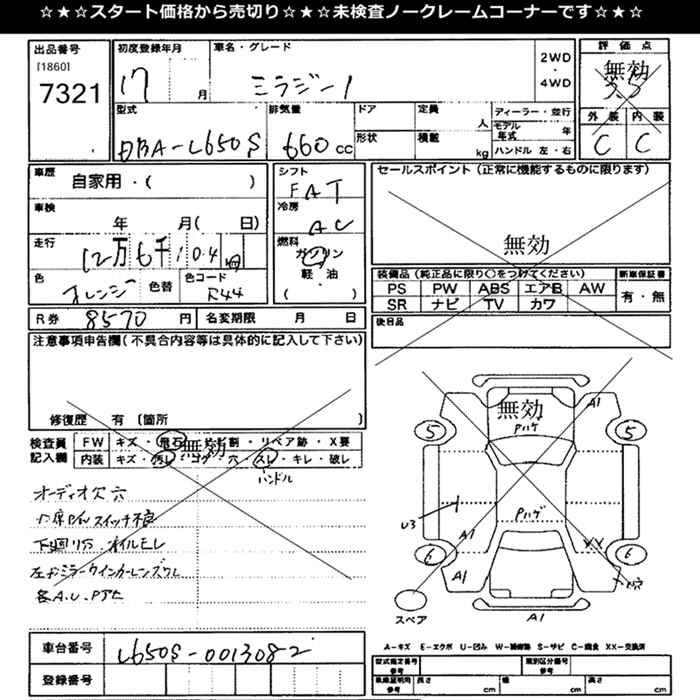 ☆★☆★スタート価格から売切り☆★☆★未検査ノークレームコーナーです☆★☆
出品番号
[1860]
7321
初度登録年月
17 月
車名・グレード
ミラジーノ
2WD
・
4WD
評価点
無効
外装 内装
C C
型式
DBA-L650S
排気量
660 cc
ドア
形状
定員
人
積載
kg
ディーラー・並行
モデル年式 年
ハンドル 左・右
車歴
自家用・( )
車検
年 月( 日)
走行
12万6千104
色
オレンジ
色替
色コード
R44
シフト
FAT
冷房
AC
燃料
ガソリン
軽・油
( )
セールスポイント(正常に機能するものに限ります)
無効
装備品(純正品に限り○をつけてください)
PS PW ABS エアB AW
SR ナビ TV カワ
新車保証書
有・無
後日品
R券 8570 円
名変期限 月 日
注意事項申告欄(不具合内容等は具体的に記入して下さい)
修復歴 有 〔箇所 〕
検査員記入欄
FW キズ・飛石・ヒビ割・リペア跡・X要
内装 キズ・汚れ・コゲ・穴・スレ・キレ・破レ
無効
ハンドル
オーディオ欠 穴
スイッチ不良
下廻りサビ オイルモレ
左ドミラーウインカーレンズワレ
各A.U.Pアセ
無効
Pハゲ
A1
5
5
Pハゲ
U3
A1
XX
6
6
A1
スペア
A1
A-キズ E-エクボ U-凹み W-補修跡 S-サビ C-腐食 XX-交換済
車台番号
L650S-0013082
登録番号
型式指定番号
参考
類別区分番号
参考
車庫証明用
参考
長さ cm
幅 cm
高さ cm